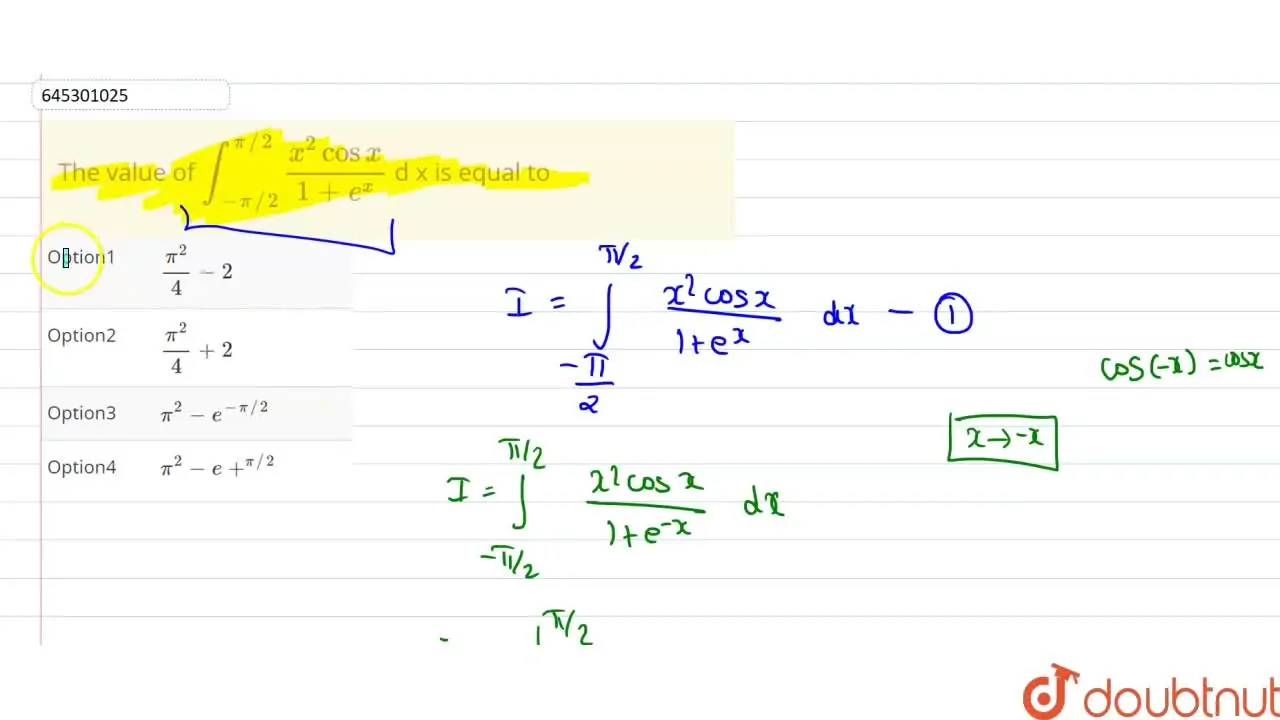 645301025
The value of ∫_{-π/2}^{π/2} x² cos x / (1 + e^x) d x is equal to
Option1 π²/4 − 2
Option2 π²/4 + 2
Option3 π² − e^{−π/2}
Option4 π² − e +^{π/2}
I = ∫_{-π/2}^{π/2} x² cos x / (1+e^x) dx − ①
cos(-x) = cos x
x → -x
I = ∫_{-π/2}^{π/2} x² cos x / (1+e^{-x}) dx
π/2
doubtnut